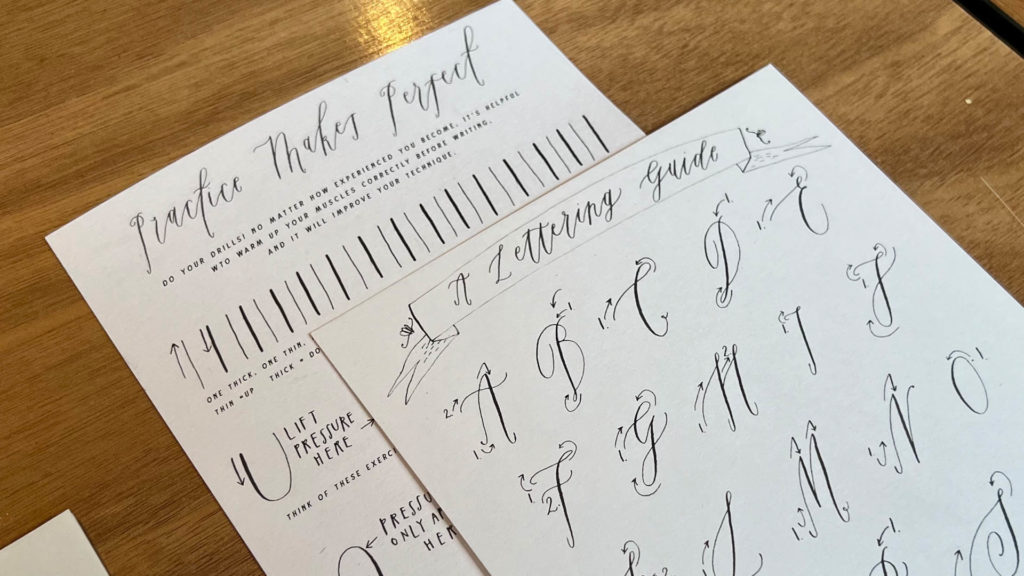 Practice Makes Perfect
DO YOUR DRILLS! NO MATTER HOW EXPERIENCED YOU BECOME, IT'S HELPFUL
WTO WARM UP YOUR MUSCLES CORRECTLY BEFORE WRITING,
AND IT WILL IMPROVE YOUR TECHNIQUE.
ONE THICK, ONE THIN.
THIN =UP THICK = DO
LIFT
PRESSURE
HERE
THINK OF THESE EXERC
PRESSU
ONLY A
HER
A Lettering Guide
A B C D E
F G H I J
L M N O